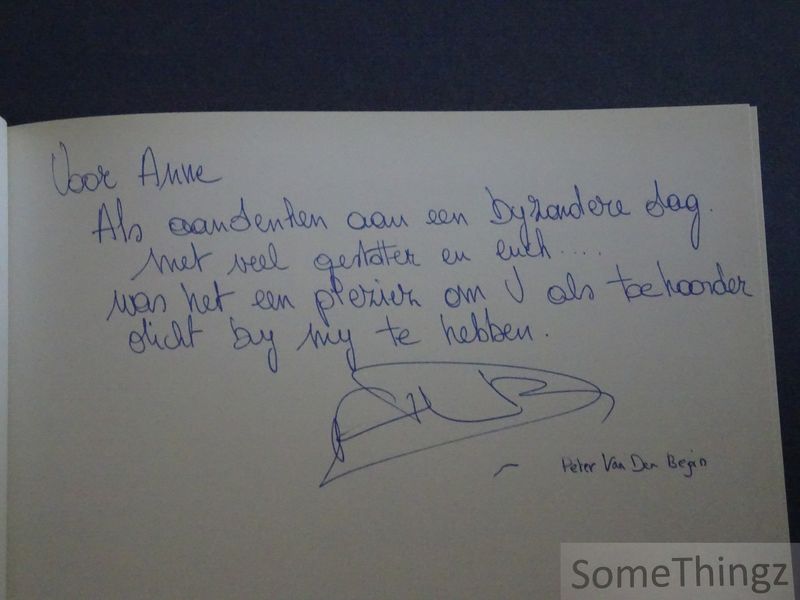 Voor Anne
Als aandenken aan een byzondere dag.
met veel gestotter en euch....
was het een plezier om U als toehoorder
dicht by my te hebben.
Peter Van Den Begin
SomeThingz